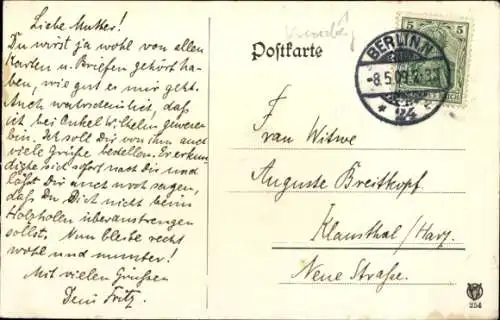 Liebe Mutter!
Du wirst ja wohl von allen
Karten u. Briefen gehört ha-
ben, wie gut es mir geht.
Auch , daß
ich bei Onkel Wilhelm gewesen
bin. Ich soll Dir von ihm auch
viele Grüße bestellen. Er erkun
digte sich sofort nach Dir und
läßt Dir auch noch sagen,
daß Du Dich nicht beim
Holzholen überanstrengen
sollst. Nun bleibe recht
wohl und munter!
Mit vielen Grüssen
Dein Fritz.
Postkarte
BERLIN N
-8.5.09.
* 24
5 5
Frau Witwe
Auguste Breitkopf.
Klausthal/Harz.
Neue Straße.
254